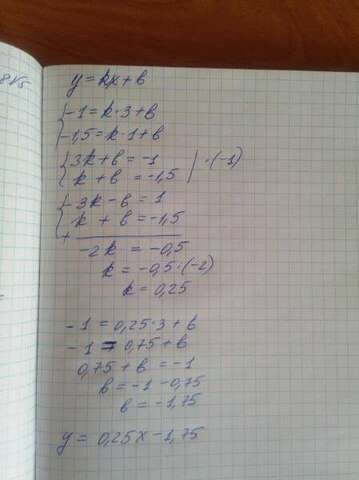 y = kx + b
-1 = k·3 + b
-1,5 = k·1 + b
3k + b = -1 | ·(-1)
k + b = -1,5
-3k - b = 1
k + b = -1,5
+
-2k = -0,5
k = -0,5·(-2)
k = 0,25
-1 = 0,25·3 + b
-1 = 0,75 + b
0,75 + b = -1
b = -1 - 0,75
b = -1,75
y = 0,25x - 1,75